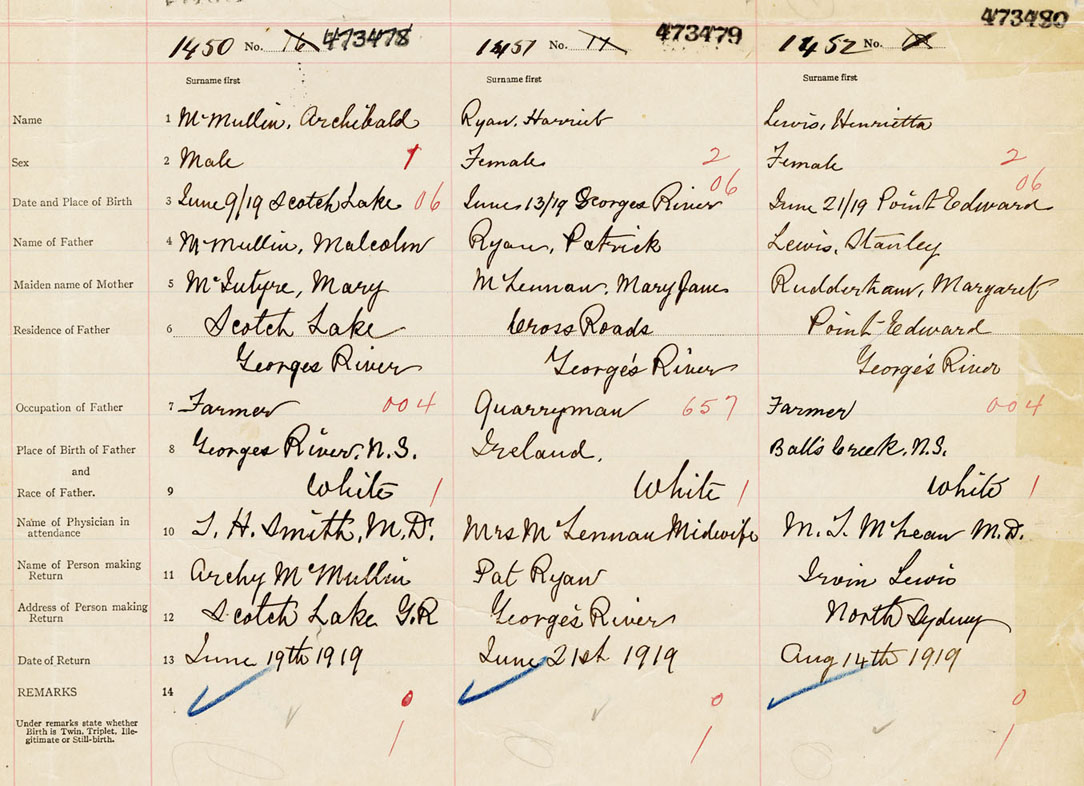 473480
1450 No. 16 473478 1451 No. 17 473479 1452 No.
Surname first Surname first Surname first
Name 1 McMullin, Archibald Ryan, Harriet Lewis, Henrietta
Sex 2 Male 1 Female 2 Female 2
Date and Place of Birth 3 June 9/19 Scotch Lake 06 June 13/19 Georges River 06 June 21/19 Point Edward 06
Name of Father 4 McMullin, Malcolm Ryan, Patrick Lewis, Stanley
Maiden name of Mother 5 McIntyre, Mary McLennan, Mary Jane Rudderham, Margaret
Residence of Father 6 Scotch Lake Cross Roads Point Edward
Georges River George's River George's River
Occupation of Father 7 Farmer 004 Quarryman 657 Farmer 004
Place of Birth of Father 8 Georges River, N.S. Ireland, Balls Creek, N.S.
and
Race of Father. 9 White 1 White 1 White 1
Name of Physician in
attendance 10 L. H. Smith, M.D. Mrs McLennan Midwife M. T. McLean M.D.
Name of Person making
Return 11 Archy McMullin Pat Ryan Irvin Lewis
Address of Person making
Return 12 Scotch Lake G.R George's River North Sydney
Date of Return 13 June 19th 1919 June 21st 1919 Aug 14th 1919
REMARKS 14 0 0 0
Under remarks state whether
Birth is Twin, Triplet, Ille-
gitimate or Still-birth. 1 1 1